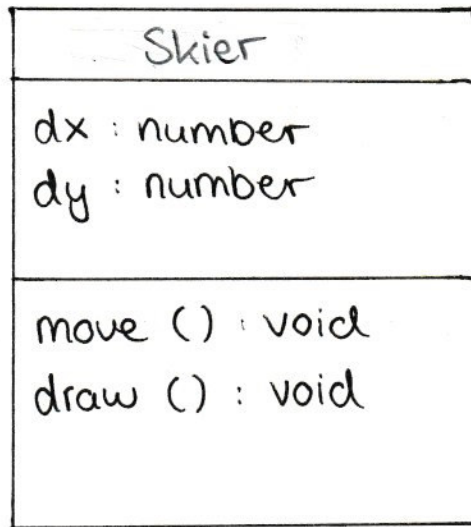 Skier
dx : number
dy : number
move () : void
draw () : void